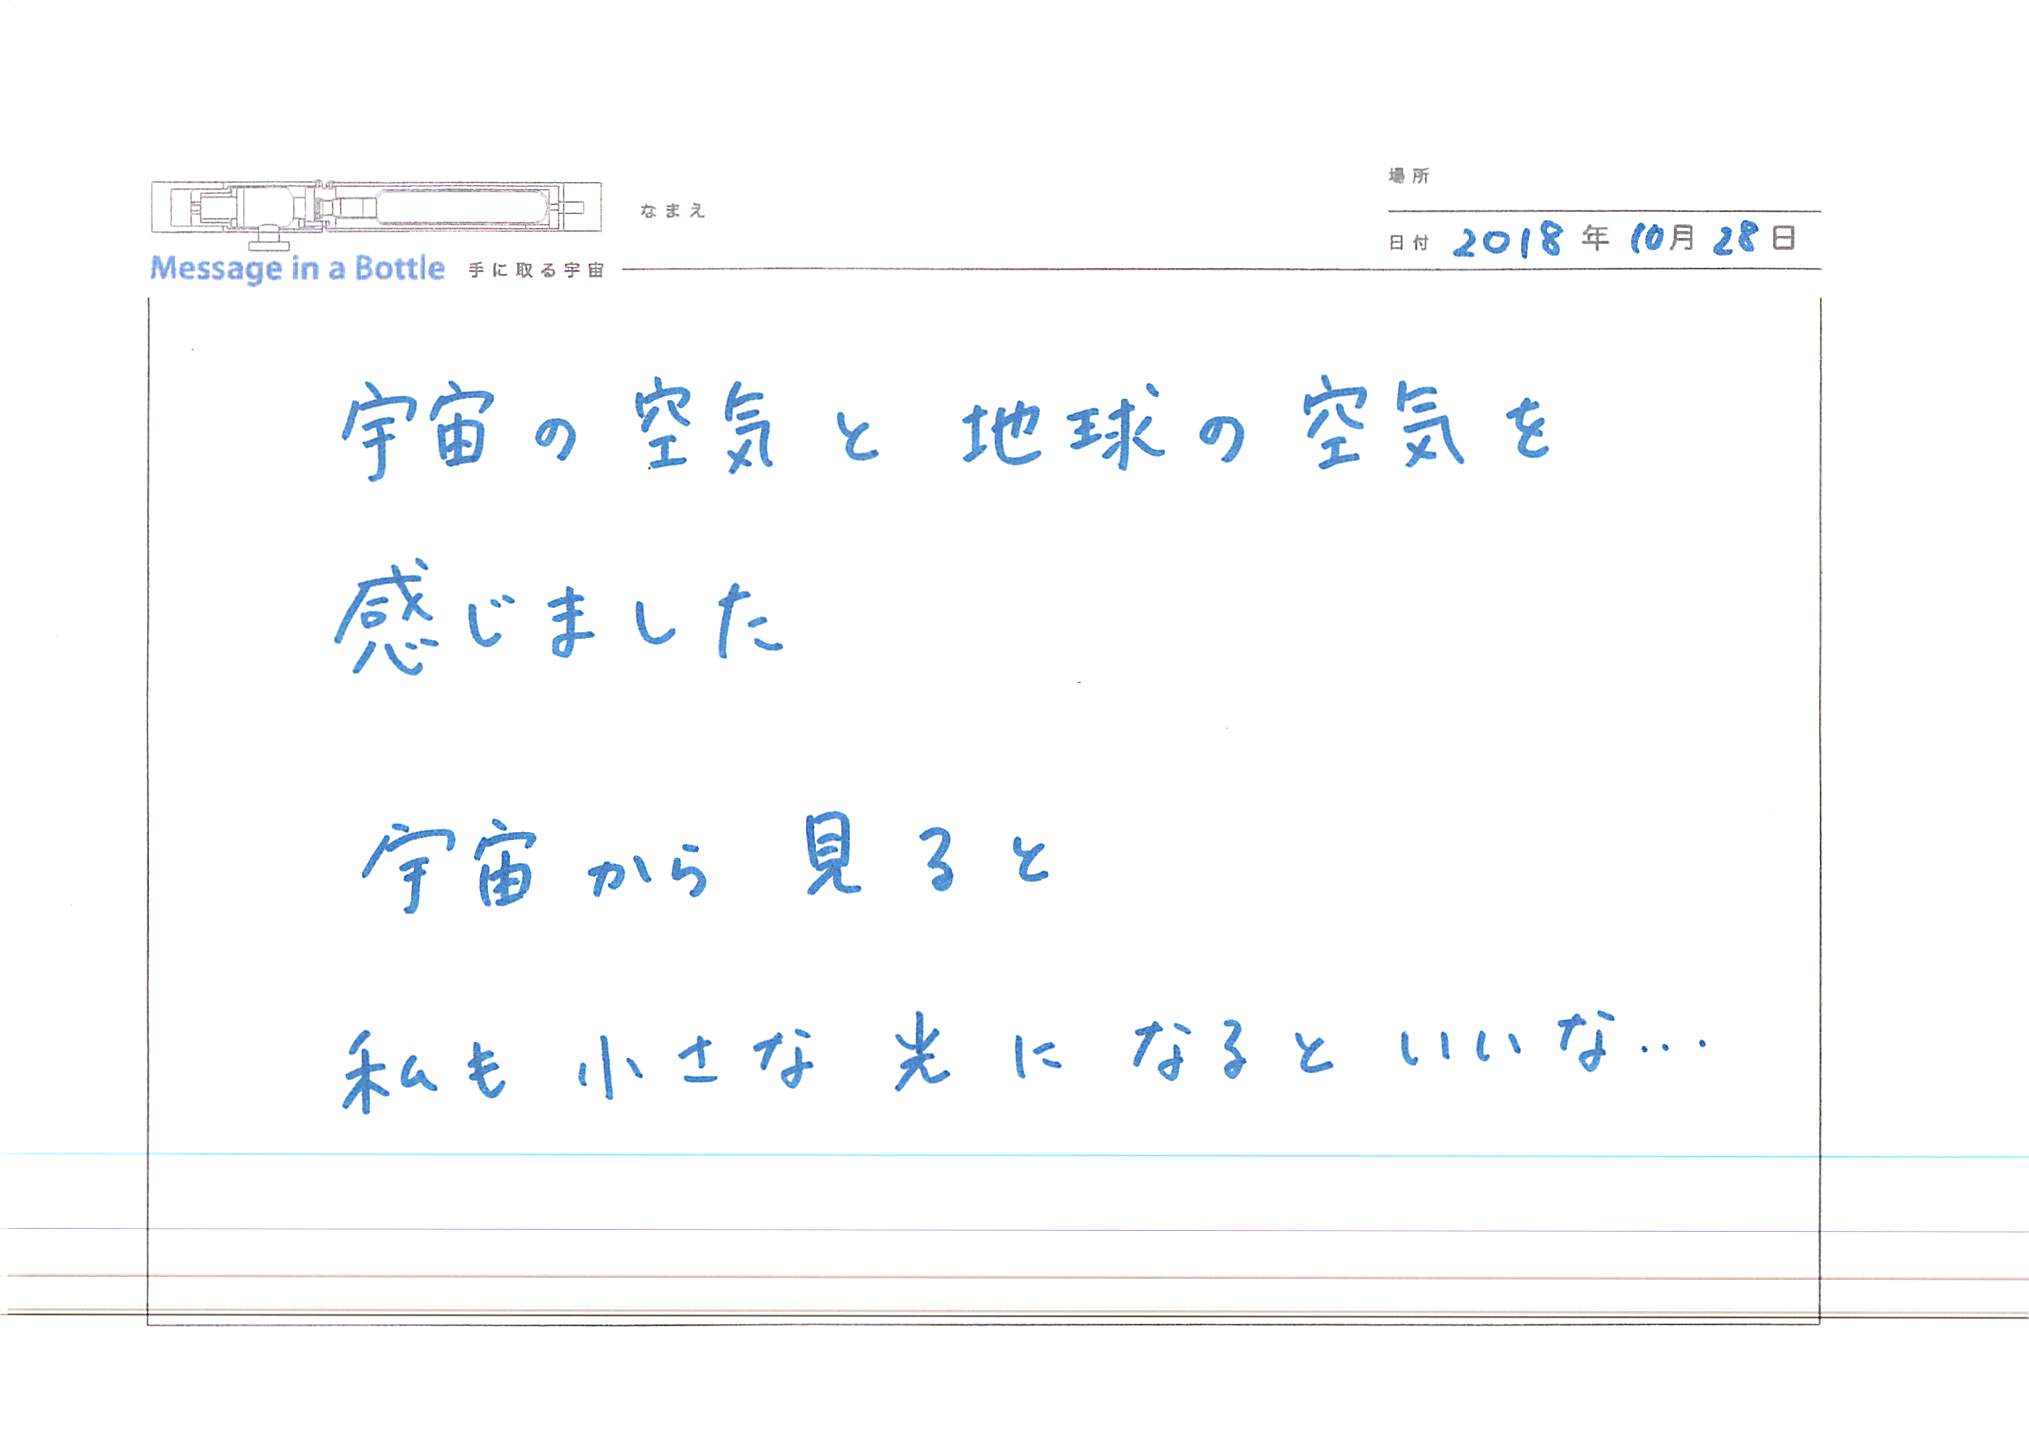 場所
なまえ
日付 2018年10月28日
Message in a Bottle 手に取る宇宙
宇宙の空気と地球の空気を
感じました
宇宙から見ると
私も小さな光になるといいな...